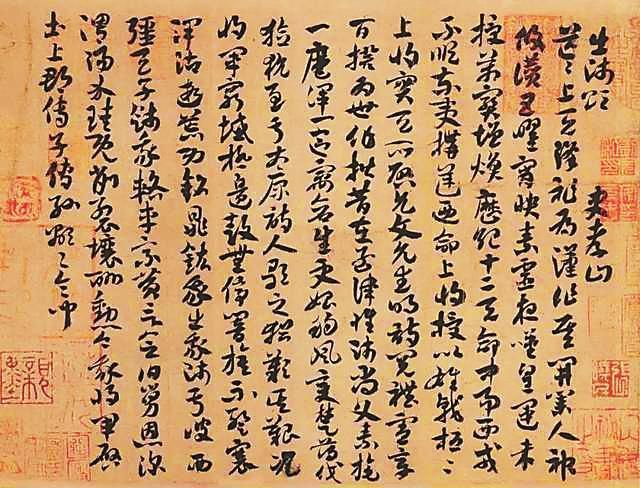 出師頌 史孝山
茫茫上天降祚為漢作基開業人神
攸讚五曜宵映素靈夜歎皇運未
授萬寶增煥歷紀十二天命中易西戎
不順東夷構逆乃命上將授以雄戟桓桓
上將實天所啟允文允武明詩閱禮憲章
百揆為世作楷昔在孟津惟師尚父素旄
一麾渾一區宇蒼生更始朔風變楚薄伐
獫狁至于太原詩人歌之猶歎其艱況
我將軍窮域極邊鼓無停響旗不蹔褰
澤霑遐荒功銘鼎鉉我出我師于彼西
疆天子餞我輅車乘黃言念伯舅恩深
渭陽介珪既削裂壤酬勳今我將軍啟
土上郡傳子傳孫顯顯令問